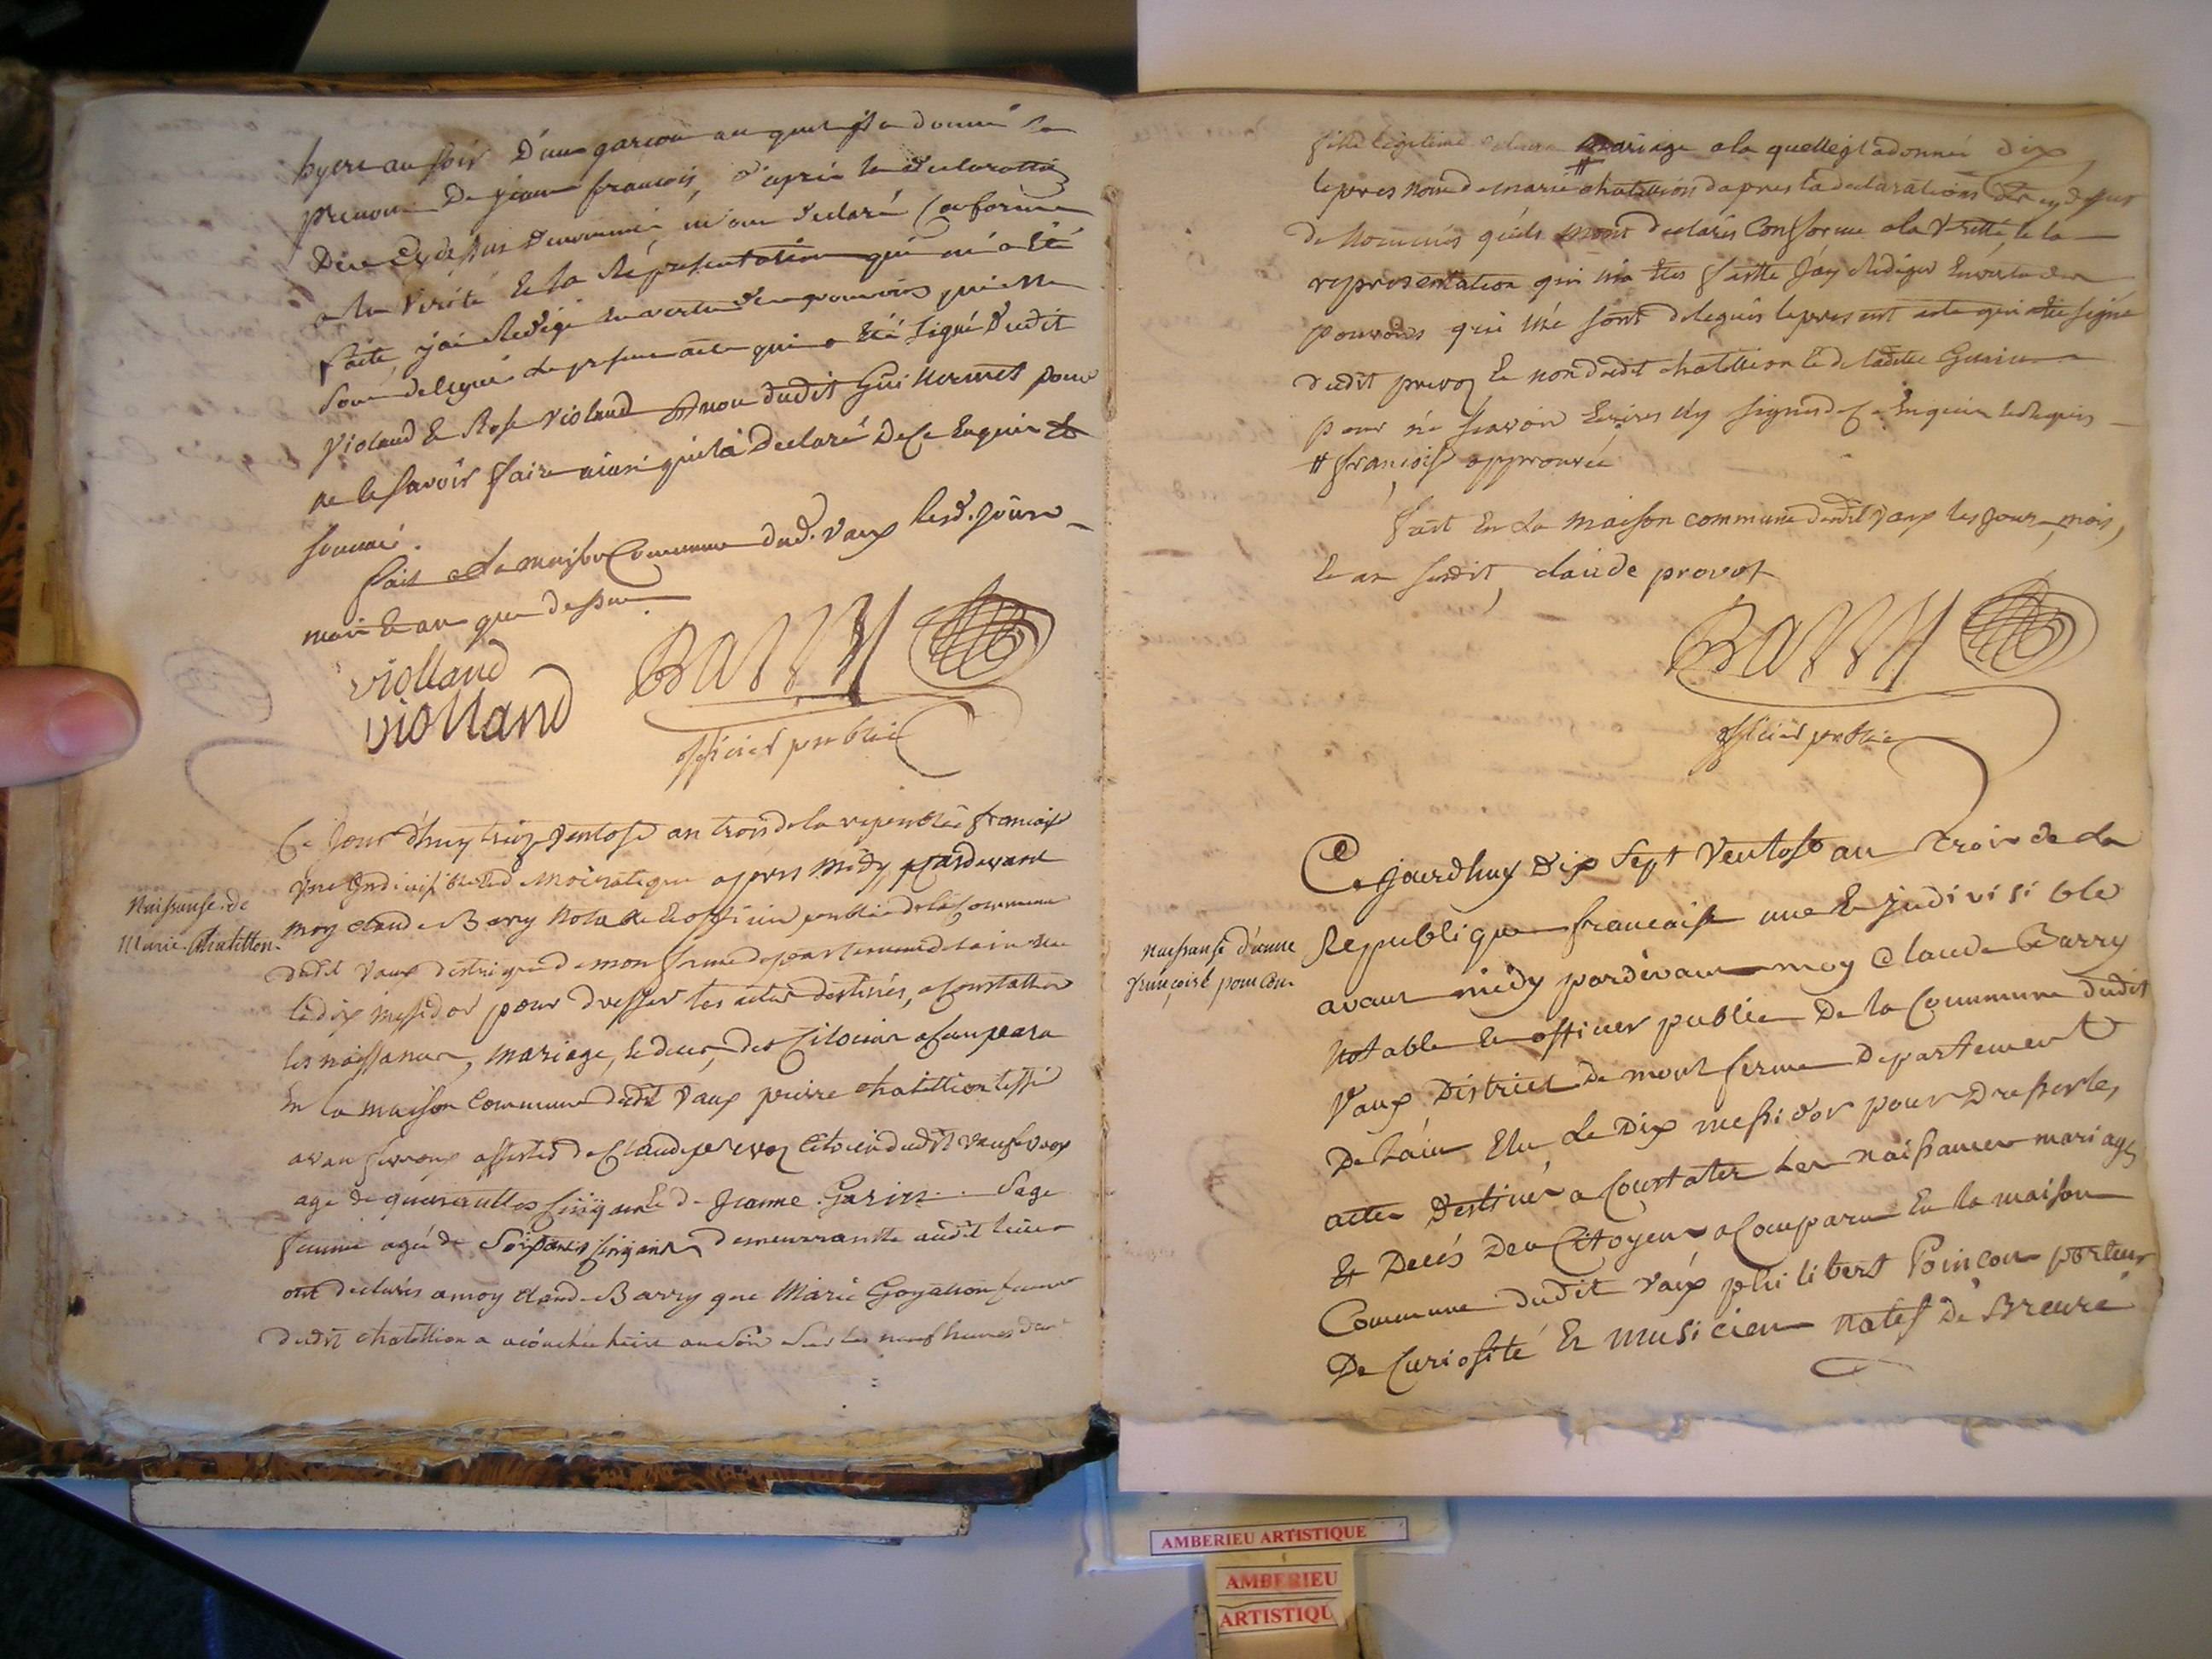 hyere au soir D'un garcon au quel il a donné le
prenom De jean francois, d'apres la declaration
Des cydessus denommés, m'ont declaré Conforme
a la verité & la Representation qui m'a été
faite, j'ai Redigé en vertu des pouvoirs qui me
sont delegués le present acte qui a été signé dudit
Violand & Rose Violand & non dudit Guillermet pour
ne le savoir faire ainsi qu'il a Declaré De ce Enquis &
sommé.
fait a la maison Commune dud. Vaux lesd. jour
mois & an que dessus
violland
violland
Barry
officier public
Naissanse de
Marie Chatillion
Ce Jour d'huy treize Ventose an trois de la republic francaise
une Indivisible et Democratique apres midy pardevant
moy claude Barry Notable & officier public de la Commune
dudit Vaux distrique de mon ferme departement de lain elu
le dix messidor pour dresser les actes destinés, a Constatter
les naissances, mariage, & deces, des Citoiens a Comparu
En la maison Commune dudit Vaux pierre chatillion
assistes de Claude prevoz Citoien dudit Vaux
age de quarante cinq ans & de Jeanne Garin Sage
femme agée de Soixante cinq ans demeurante audit lieu
ont declarés a moy claude Barry que Marie Goyation femme
dudit chatillion a acouchée hier au soir Sur les neuf heures dune
fille legitime mariage a la quelle il a donné dix
le pres nom de marie # chatillion dapres la declarations des cy dessus
de Nommés qu'ils mont declarés Conforme a la Veritté, & la
representation qui ma Etes faitte Jay Rediger En vertu des
pouvoirs qui me sont delegués le present acte qui a été signé
dudit prevoz & non dudit chatillion & de ladite Garin
pour ne scavoir Ecrires Ny signer de ce Enquis & Requis
# francoise approuvée
fait En La maison commune dudit Vaux les jour, mois,
& an susdit, claude provot
Barry
officier public
Naissanse d'eune
françoise poincon
Ce jourdhuy Dix Sept Ventose an Trois de la
Republique francaise une & jndivisible
avant midy pardevant moy Claude Barry
Notable & officier public De la Commune dudit
Vaux District de mont ferme Departement
De Lain Elu Le Dix messidor pour Dresser les
actes Destinés a Constater Les naissances mariages
& Decés Des Citoyens a Comparu En la maison
Commune dudit Vaux philibert Poincon porteur
De Curiosité & musicien natif De Breure
AMBERIEU ARTISTIQUE
AMBERIEU
ARTISTIQU